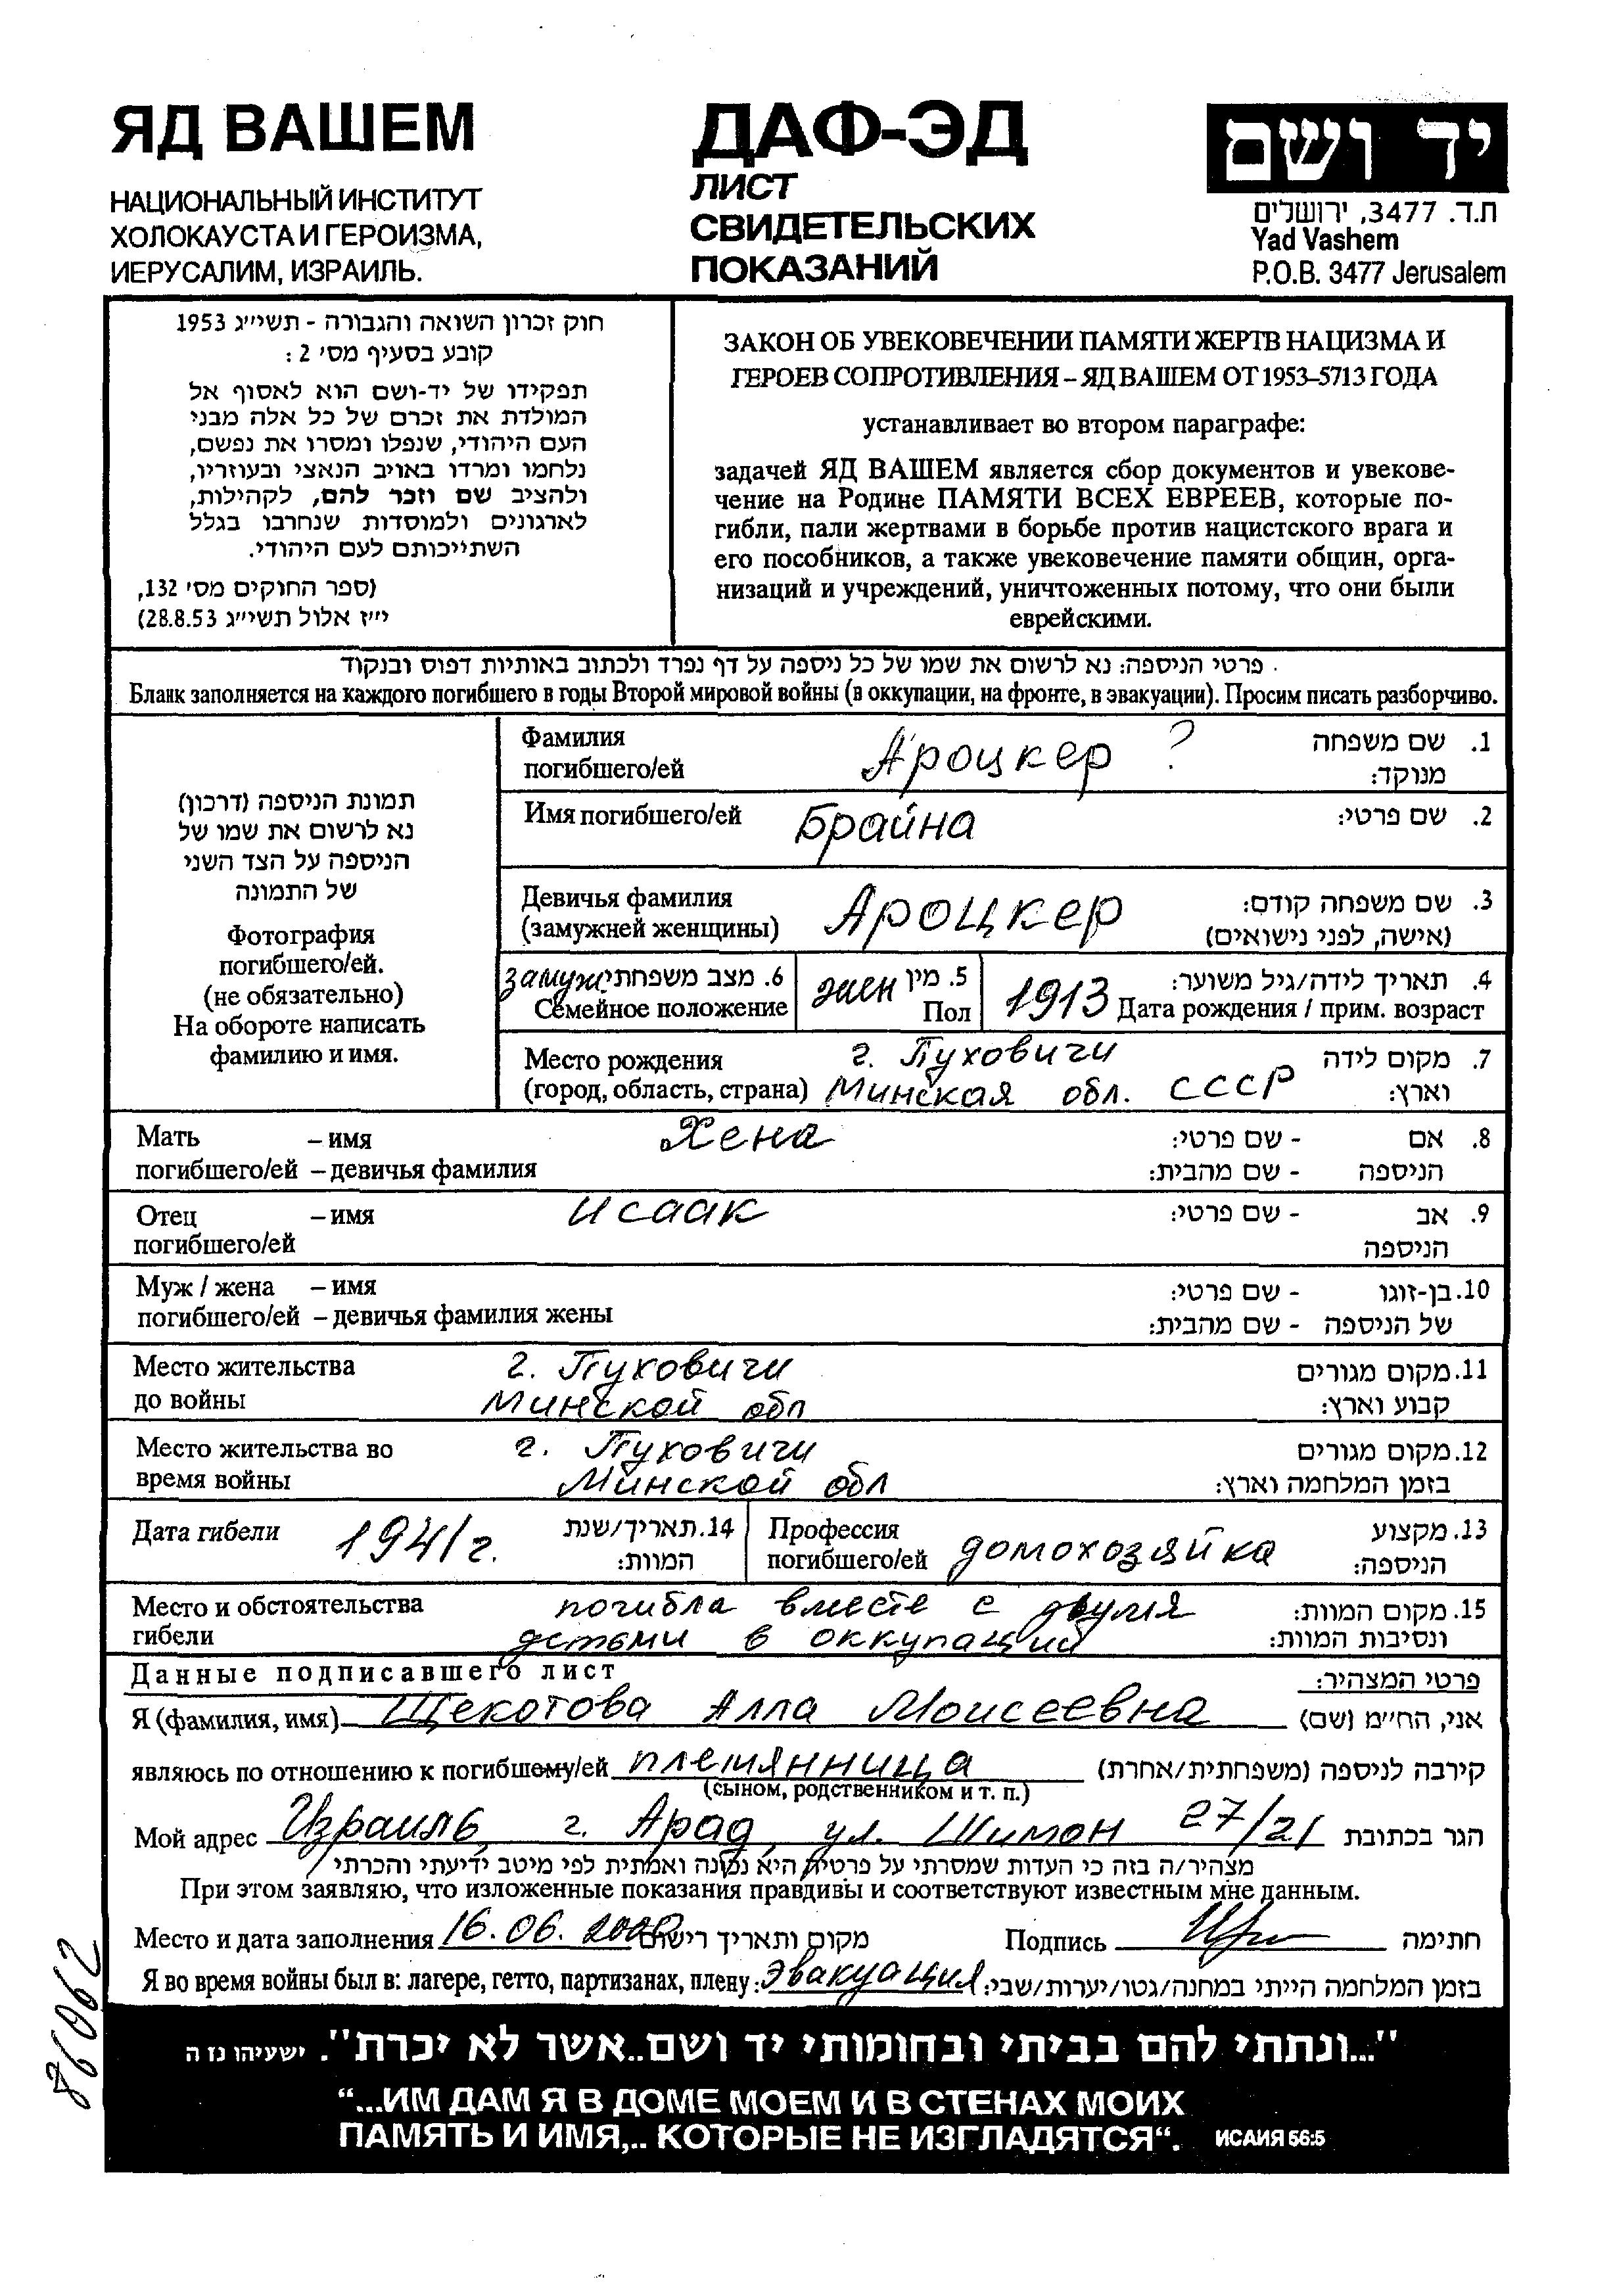 ЯД ВАШЕМ
НАЦИОНАЛЬНЫЙ ИНСТИТУТ
ХОЛОКАУСТА И ГЕРОИЗМА,
ИЕРУСАЛИМ, ИЗРАИЛЬ.
ДАФ-ЭД
ЛИСТ
СВИДЕТЕЛЬСКИХ
ПОКАЗАНИЙ
יד ושם
ת.ד. 3477, ירושלים
Yad Vashem
P.O.B. 3477 Jerusalem
חוק זכרון השואה והגבורה - תשי״ג 1953
קובע בסעיף מס׳ 2 :
תפקידו של יד-ושם הוא לאסוף אל
המולדת את זכרם של כל אלה מבני
העם היהודי, שנפלו ומסרו את נפשם,
נלחמו ומרדו באויב הנאצי ובעוזריו,
ולהציב שם וזכר להם, לקהילות,
לארגונים ולמוסדות שנחרבו בגלל
השתייכותם לעם היהודי.
(ספר החוקים מס׳ 132,
י״ז אלול תשי״ג 28.8.53)
ЗАКОН ОБ УВЕКОВЕЧЕНИИ ПАМЯТИ ЖЕРТВ НАЦИЗМА И
ГЕРОЕВ СОПРОТИВЛЕНИЯ – ЯД ВАШЕМ ОТ 1953–5713 ГОДА
устанавливает во втором параграфе:
задачей ЯД ВАШЕМ является сбор документов и увекове-
чение на Родине ПАМЯТИ ВСЕХ ЕВРЕЕВ, которые по-
гибли, пали жертвами в борьбе против нацистского врага и
его пособников, а также увековечение памяти общин, орга-
низаций и учреждений, уничтоженных потому, что они были
еврейскими.
פרטי הניספה: נא לרשום את שמו של כל ניספה על דף נפרד ולכתוב באותיות דפוס ובנקוד
Бланк заполняется на каждого погибшего в годы Второй мировой войны (в оккупации, на фронте, в эвакуации). Просим писать разборчиво.
תמונת הניספה (דרכון)
נא לרשום את שמו של
הניספה על הצד השני
של התמונה
Фотография
погибшего/ей.
(не обязательно)
На обороте написать
фамилию и имя.
Фамилия Ароцкер ? 1. שם משפחה
погибшего/ей מנוקד:
Имя погибшего/ей Брайна 2. שם פרטי:
Девичья фамилия Ароцкер 3. שם משפחה קודם:
(замужней женщины) (אישה, לפני נישואים)
замуж. 6. מצב משפחתי жен 5. מין 1913 4. תאריך לידה/גיל משוער:
Семейное положение Пол Дата рождения / прим. возраст
Место рождения г. Пуховичи 7. מקום לידה
(город, область, страна) Минская обл. СССР וארץ:
Мать – имя Хена - שם פרטי: 8. אם
погибшего/ей – девичья фамилия - שם מהבית: הניספה
Отец – имя Исаак - שם פרטי: 9. אב
погибшего/ей הניספה
Муж / жена – имя - שם פרטי: 10. בן-זוגו
погибшего/ей – девичья фамилия жены - שם מהבית: של הניספה
Место жительства г. Пуховичи 11. מקום מגורים
до войны Минской обл קבוע וארץ:
Место жительства во г. Пуховичи 12. מקום מגורים
время войны Минской обл בזמן המלחמה וארץ:
Дата гибели 1941 г. 14. תאריך/שנת המוות:
Профессия погибшего/ей домохозяйка 13. מקצוע הניספה:
Место и обстоятельства погибла вместе с двумя 15. מקום המוות:
гибели детьми в оккупации ונסיבות המוות:
Данные подписавшего лист פרטי המצהיר:
Я (фамилия, имя) Щекотова Алла Моисеевна אני, החי״מ (שם)
являюсь по отношению к погибшему/ей племянница קירבה לניספה (משפחתית/אחרת)
(сыном, родственником и т. п.)
Мой адрес Израиль, г. Арад, ул. Шимон 27/21 הגר בכתובת
מצהיר/ה בזה כי העדות שמסרתי על פרטיה היא נכונה ואמתית לפי מיטב ידיעתי והכרתי
При этом заявляю, что изложенные показания правдивы и соответствуют известным мне данным.
Место и дата заполнения 16.06.2000 מקום ותאריך רישום Подпись חתימה
Я во время войны был в: лагере, гетто, партизанах, плену: эвакуация בזמן המלחמה הייתי במחנה/גטו/יערות/שבי:
86062
"...ונתתי להם בביתי ובחומותי יד ושם..אשר לא יכרת". ישעיהו נז ה
“...ИМ ДАМ Я В ДОМЕ МОЕМ И В СТЕНАХ МОИХ
ПАМЯТЬ И ИМЯ,.. КОТОРЫЕ НЕ ИЗГЛАДЯТСЯ“. ИСАИЯ 56:5